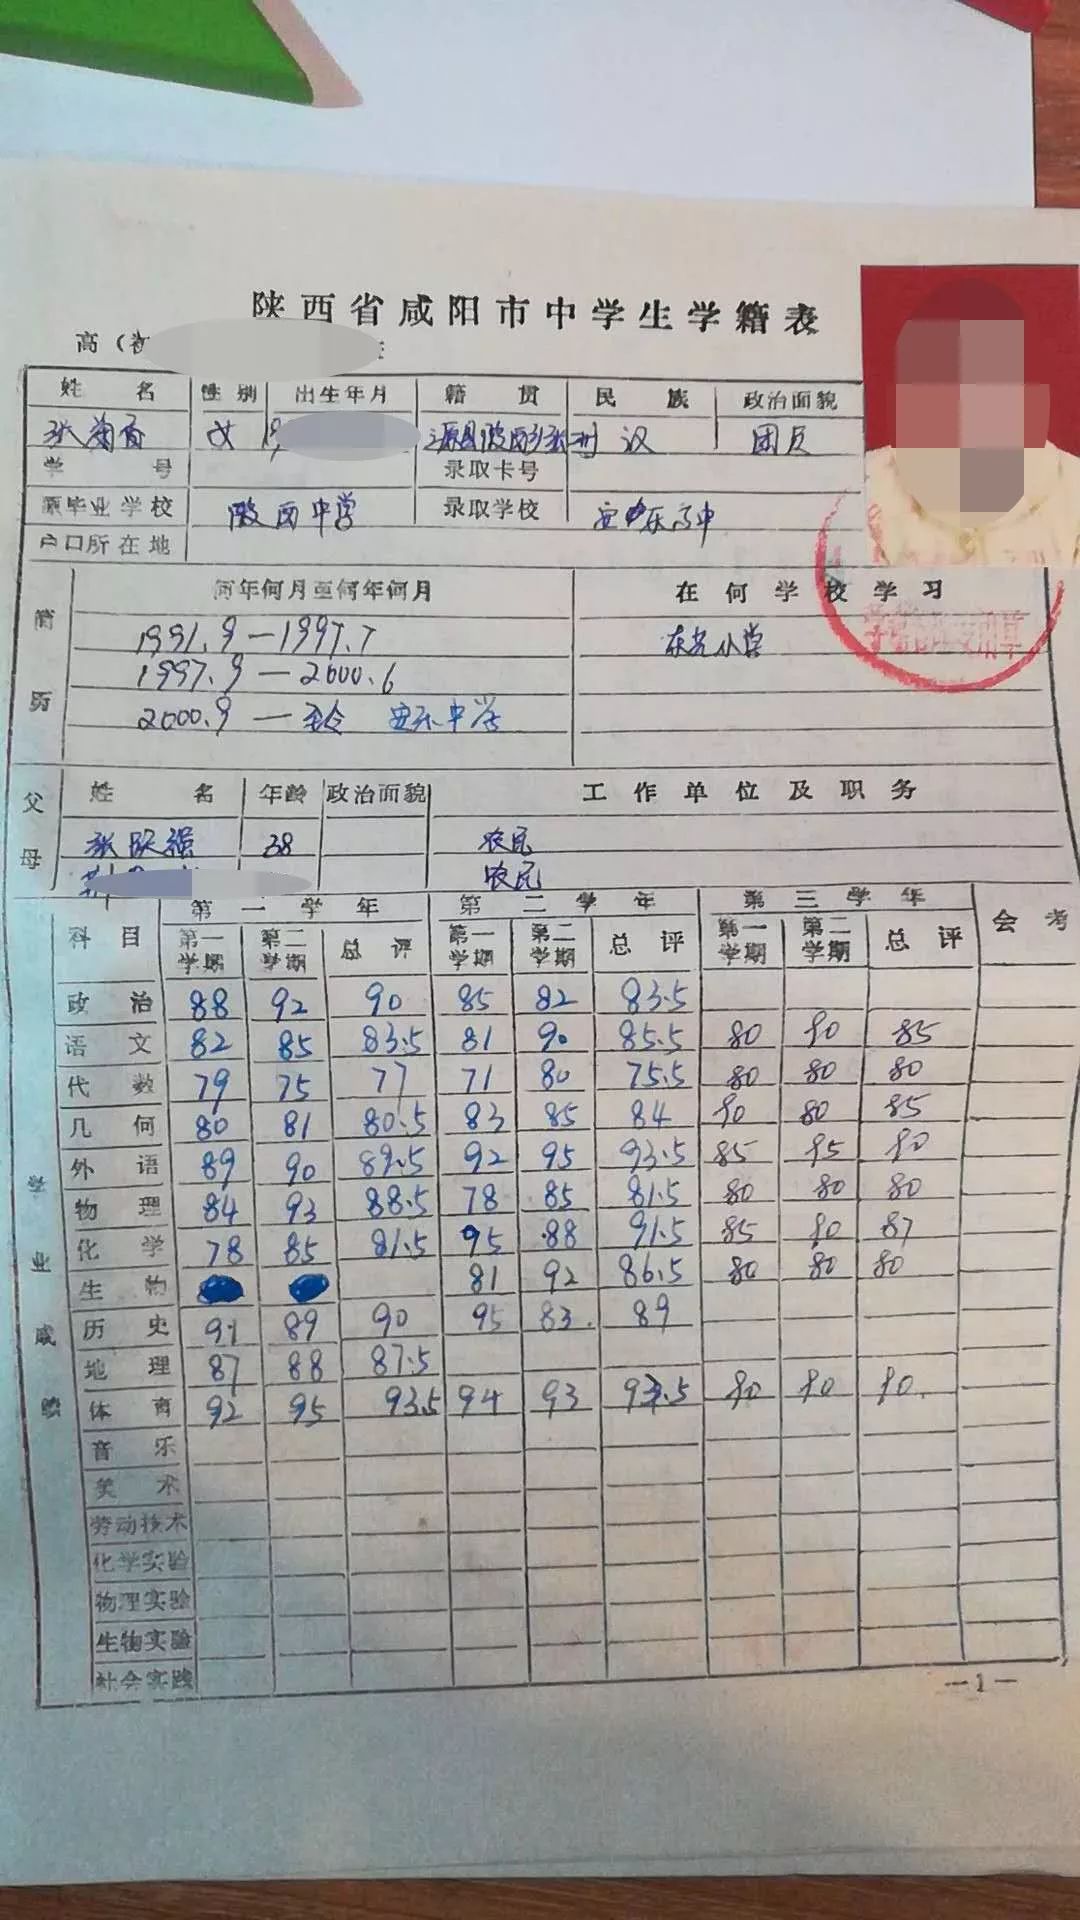 陕西省咸阳市中学生学籍表
高（初
姓 名 性别 出生年月 籍 贯 民 族 政治面貌
张菊香 女 19 汉 团员
学 号 录取卡号
原毕业学校 陂西中学 录取学校 安乐高中
户口所在地
简历 何年何月至何年何月 在何学校学习
1991.9—1997.7 东党小学
1997.9—2000.6
2000.9—至今 安乐中学
父母 姓 名 年龄 政治面貌 工作单位及职务
张跃强 38 农民
农民
学业成绩 科目 第一学年 第二学年 第三学年 会考
第一学期 第二学期 总评 第一学期 第二学期 总评 第一学期 第二学期 总评
政治 88 92 90 85 82 83.5
语文 82 85 83.5 81 90 85.5 80 90 85
代数 79 75 77 71 80 75.5 80 80 80
几何 80 81 80.5 83 85 84 90 80 85
外语 89 90 89.5 92 95 93.5 85 95 90
物理 84 93 88.5 78 85 81.5 80 80 80
化学 78 85 81.5 95 88 91.5 85 90 87
生物 81 92 86.5 80 80 80
历史 91 89 90 95 83 89
地理 87 88 87.5
体育 92 95 93.5 94 93 93.5 90 90 90
音乐
美术
劳动技术
化学实验
物理实验
生物实验
社会实践
—1—